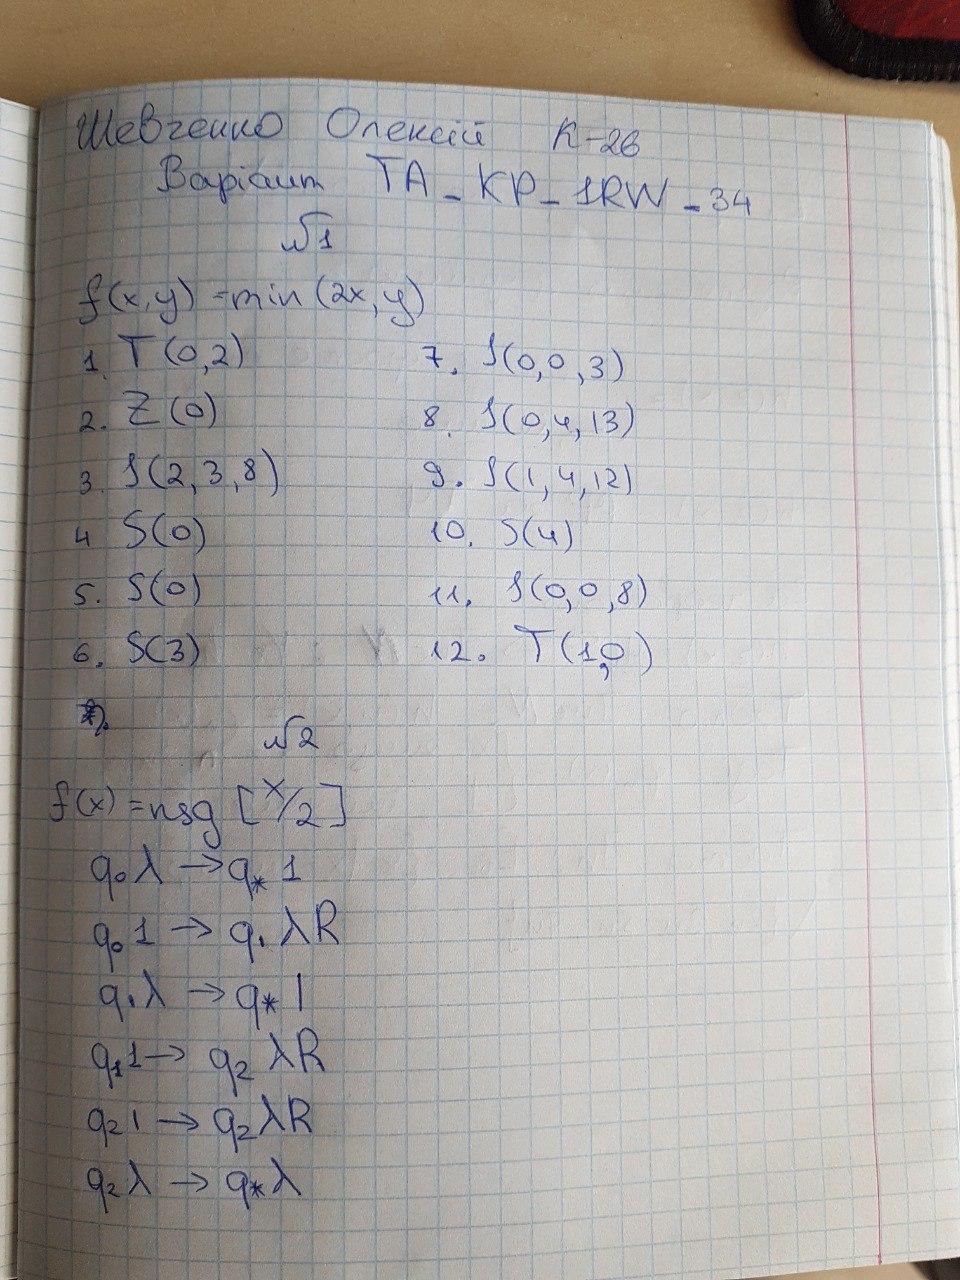 Шевченко Олексій К-26
Варіант ТА_КР_1RW_34
№1
f(x,y) = min(2x,y)
1. T(0,2)
2. Z(0)
3. J(2,3,8)
4 S(0)
5. S(0)
6. S(3)
7. J(0,0,3)
8. J(0,4,13)
9. J(1,4,12)
10. S(4)
11. J(0,0,8)
12. T(1,0)
№2
f(x) = nsg [x/2]
q₀λ → q* 1
q₀1 → q₁λR
q₁λ → q* |
q₁1 → q₂λR
q₂| → q₂λR
q₂λ → q*λ